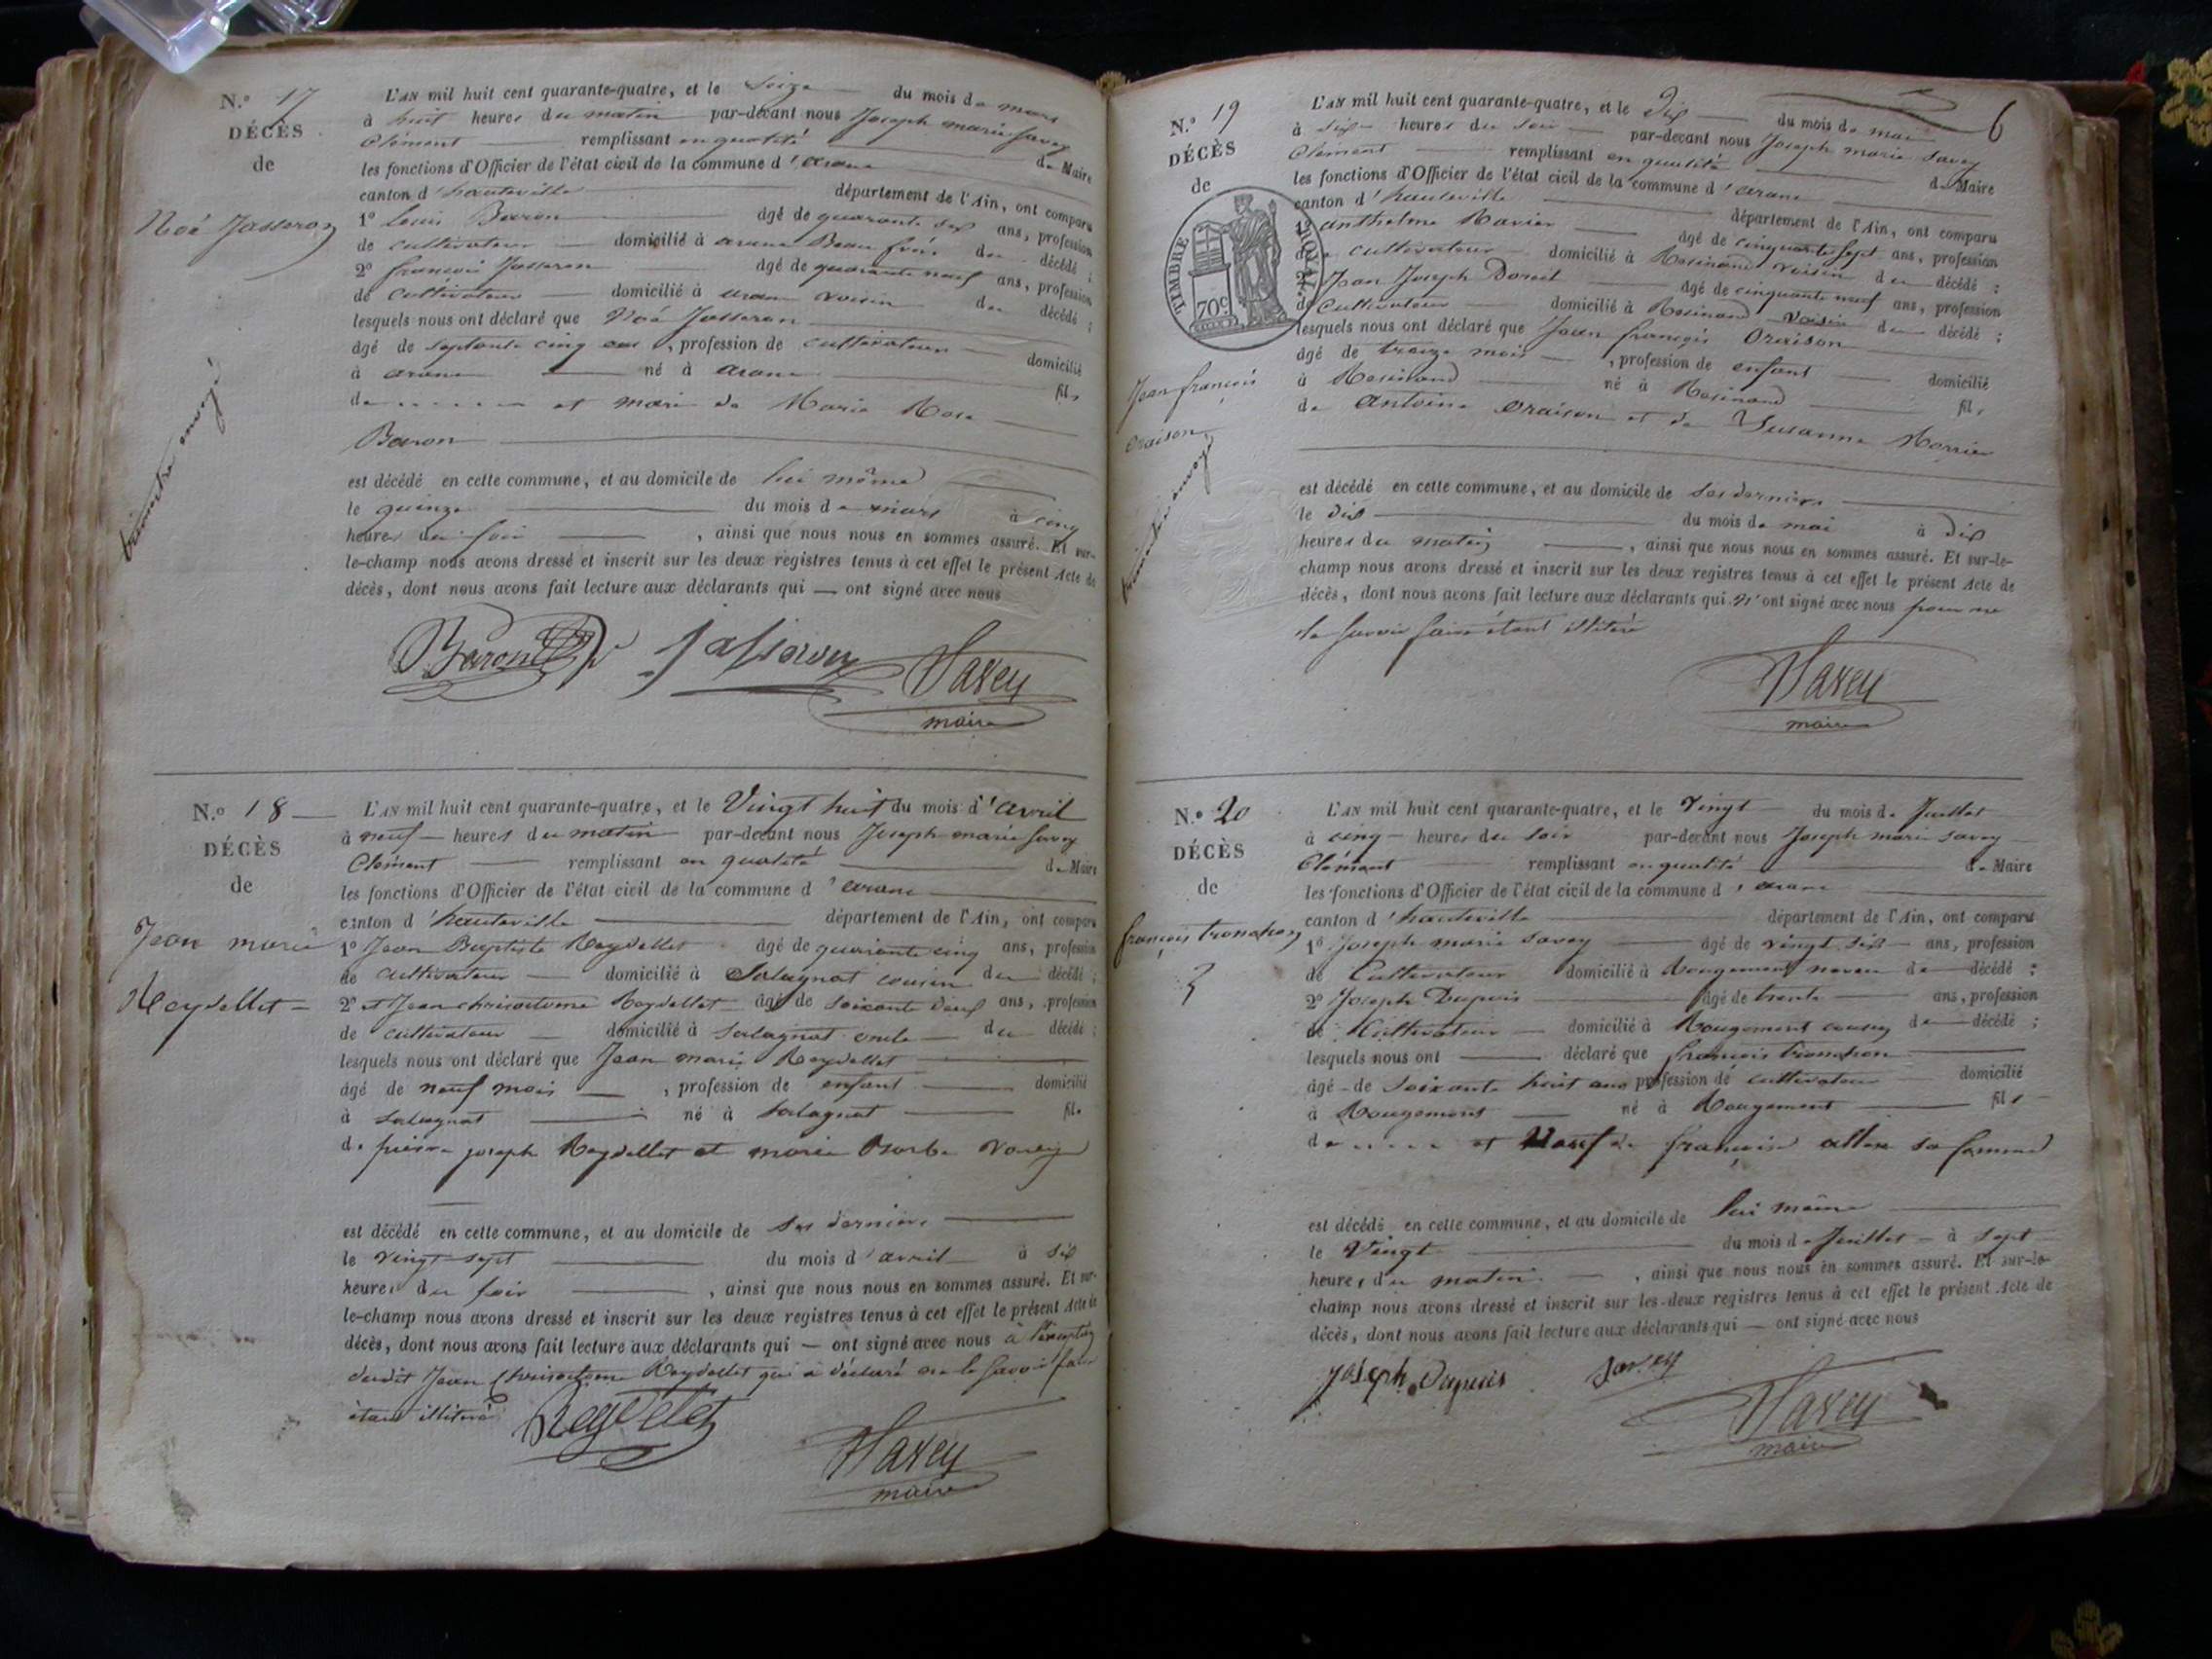 N.o 17
DÉCÈS
de
Noé Josseron
trimestre envoyé
L'AN mil huit cent quarante-quatre, et le seize du mois de mars
à huit heures du matin par-devant nous Joseph marie Savey
Clément remplissant en qualité de Maire
les fonctions d'Officier de l'état civil de la commune d'arane
canton d'hauteville département de l'Ain, ont comparu
1o louis Baron âgé de quarante six ans, profession
de cultivateur domicilié à arane Beau frère du décédé ;
2o françois Josseron âgé de quarante neuf ans, profession
de cultivateur domicilié à arane voisin du décédé ;
lesquels nous ont déclaré que Noé Josseron
âgé de septante cinq ans, profession de cultivateur domicilié
à arane né à arane fils
de - - - - - - et mari de Marie Rose
Baron
est décédé en cette commune, et au domicile de lui même
le quinze du mois de mars à cinq
heures du soir, ainsi que nous nous en sommes assuré. Et sur-
le-champ nous avons dressé et inscrit sur les deux registres tenus à cet effet le présent Acte de
décès, dont nous avons fait lecture aux déclarants qui — ont signé avec nous
Baron Josseron Savey
maire
N.o 18
DÉCÈS
de
Jean marie
Reydellet
L'AN mil huit cent quarante-quatre, et le Vingt huit du mois d'avril
à neuf heures du matin par-devant nous Joseph marie Savey
Clément remplissant en qualité de Maire
les fonctions d'Officier de l'état civil de la commune d'arane
canton d'hauteville département de l'Ain, ont comparu
1o Jean Baptiste Reydellet âgé de quarante cinq ans, profession
de cultivateur domicilié à Salagnat cousin du décédé ;
2o et Jean chrisostome Reydellet âgé de soixante deux ans, profession
de cultivateur domicilié à Salagnat oncle du décédé ;
lesquels nous ont déclaré que Jean marie Reydellet
âgé de neuf mois, profession de enfant domicilié
à Salagnat né à Salagnat fils
de pierre joseph Reydellet et marie Barbe
est décédé en cette commune, et au domicile de ses derniers
le vingt sept du mois d'avril à six
heures du soir, ainsi que nous nous en sommes assuré. Et sur-
le-champ nous avons dressé et inscrit sur les deux registres tenus à cet effet le présent Acte de
décès, dont nous avons fait lecture aux déclarants qui — ont signé avec nous à l'exception
dudit Jean Chrisostome Reydellet qui a déclaré ne le savoir faire
étant illitéré Reydelet Savey
maire
6
N.o 19
DÉCÈS
de
TIMBRE ROYAL
70c
Jean françois
oraison
trimestre envoyé
L'AN mil huit cent quarante-quatre, et le Dix du mois de mai
à six heures du soir par-devant nous Joseph marie Savey
Clément remplissant en qualité de Maire
les fonctions d'Officier de l'état civil de la commune d'arane
canton d'hauteville département de l'Ain, ont comparu
1o anthelme Ravier âgé de cinquante sept ans, profession
de cultivateur domicilié à Resinand voisin du décédé ;
2o Jean Joseph âgé de cinquante neuf ans, profession
de Cultivateur domicilié à Resinand voisin du décédé ;
lesquels nous ont déclaré que Jean françois Oraison
âgé de treize mois, profession de enfant domicilié
à Resinand né à Resinand fils
de Antoine oraison et de Susanne
est décédé en cette commune, et au domicile de ses derniers
le dix du mois de mai à dix
heures du matin, ainsi que nous nous en sommes assuré. Et sur-le-
champ nous avons dressé et inscrit sur les deux registres tenus à cet effet le présent Acte de
décès, dont nous avons fait lecture aux déclarants qui n'ont signé avec nous pour ne
le savoir faire étant illitéré
Savey
maire
N.o 20
DÉCÈS
de
françois tronchon
L'AN mil huit cent quarante-quatre, et le Vingt du mois de Juillet
à cinq heures du soir par-devant nous Joseph marie Savey
Clément remplissant en qualité de Maire
les fonctions d'Officier de l'état civil de la commune d'arane
canton d'hauteville département de l'Ain, ont comparu
1o Joseph marie Savey âgé de vingt six ans, profession
de Cultivateur domicilié à Rougemont neveu du décédé ;
2o Joseph Dupuis âgé de trente ans, profession
de Cultivateur domicilié à Rougemont cousin du décédé ;
lesquels nous ont déclaré que françois tronchon
âgé de soixante huit ans profession de cultivateur domicilié
à Rougemont né à Rougemont fils
de - - - - - et Veuf de françoise allex sa femme
est décédé en cette commune, et au domicile de lui même
le Vingt du mois de Juillet à sept
heures du matin, ainsi que nous nous en sommes assuré. Et sur-le-
champ nous avons dressé et inscrit sur les deux registres tenus à cet effet le présent Acte de
décès, dont nous avons fait lecture aux déclarants qui — ont signé avec nous
Joseph Dupuis Savey
Savey
maire